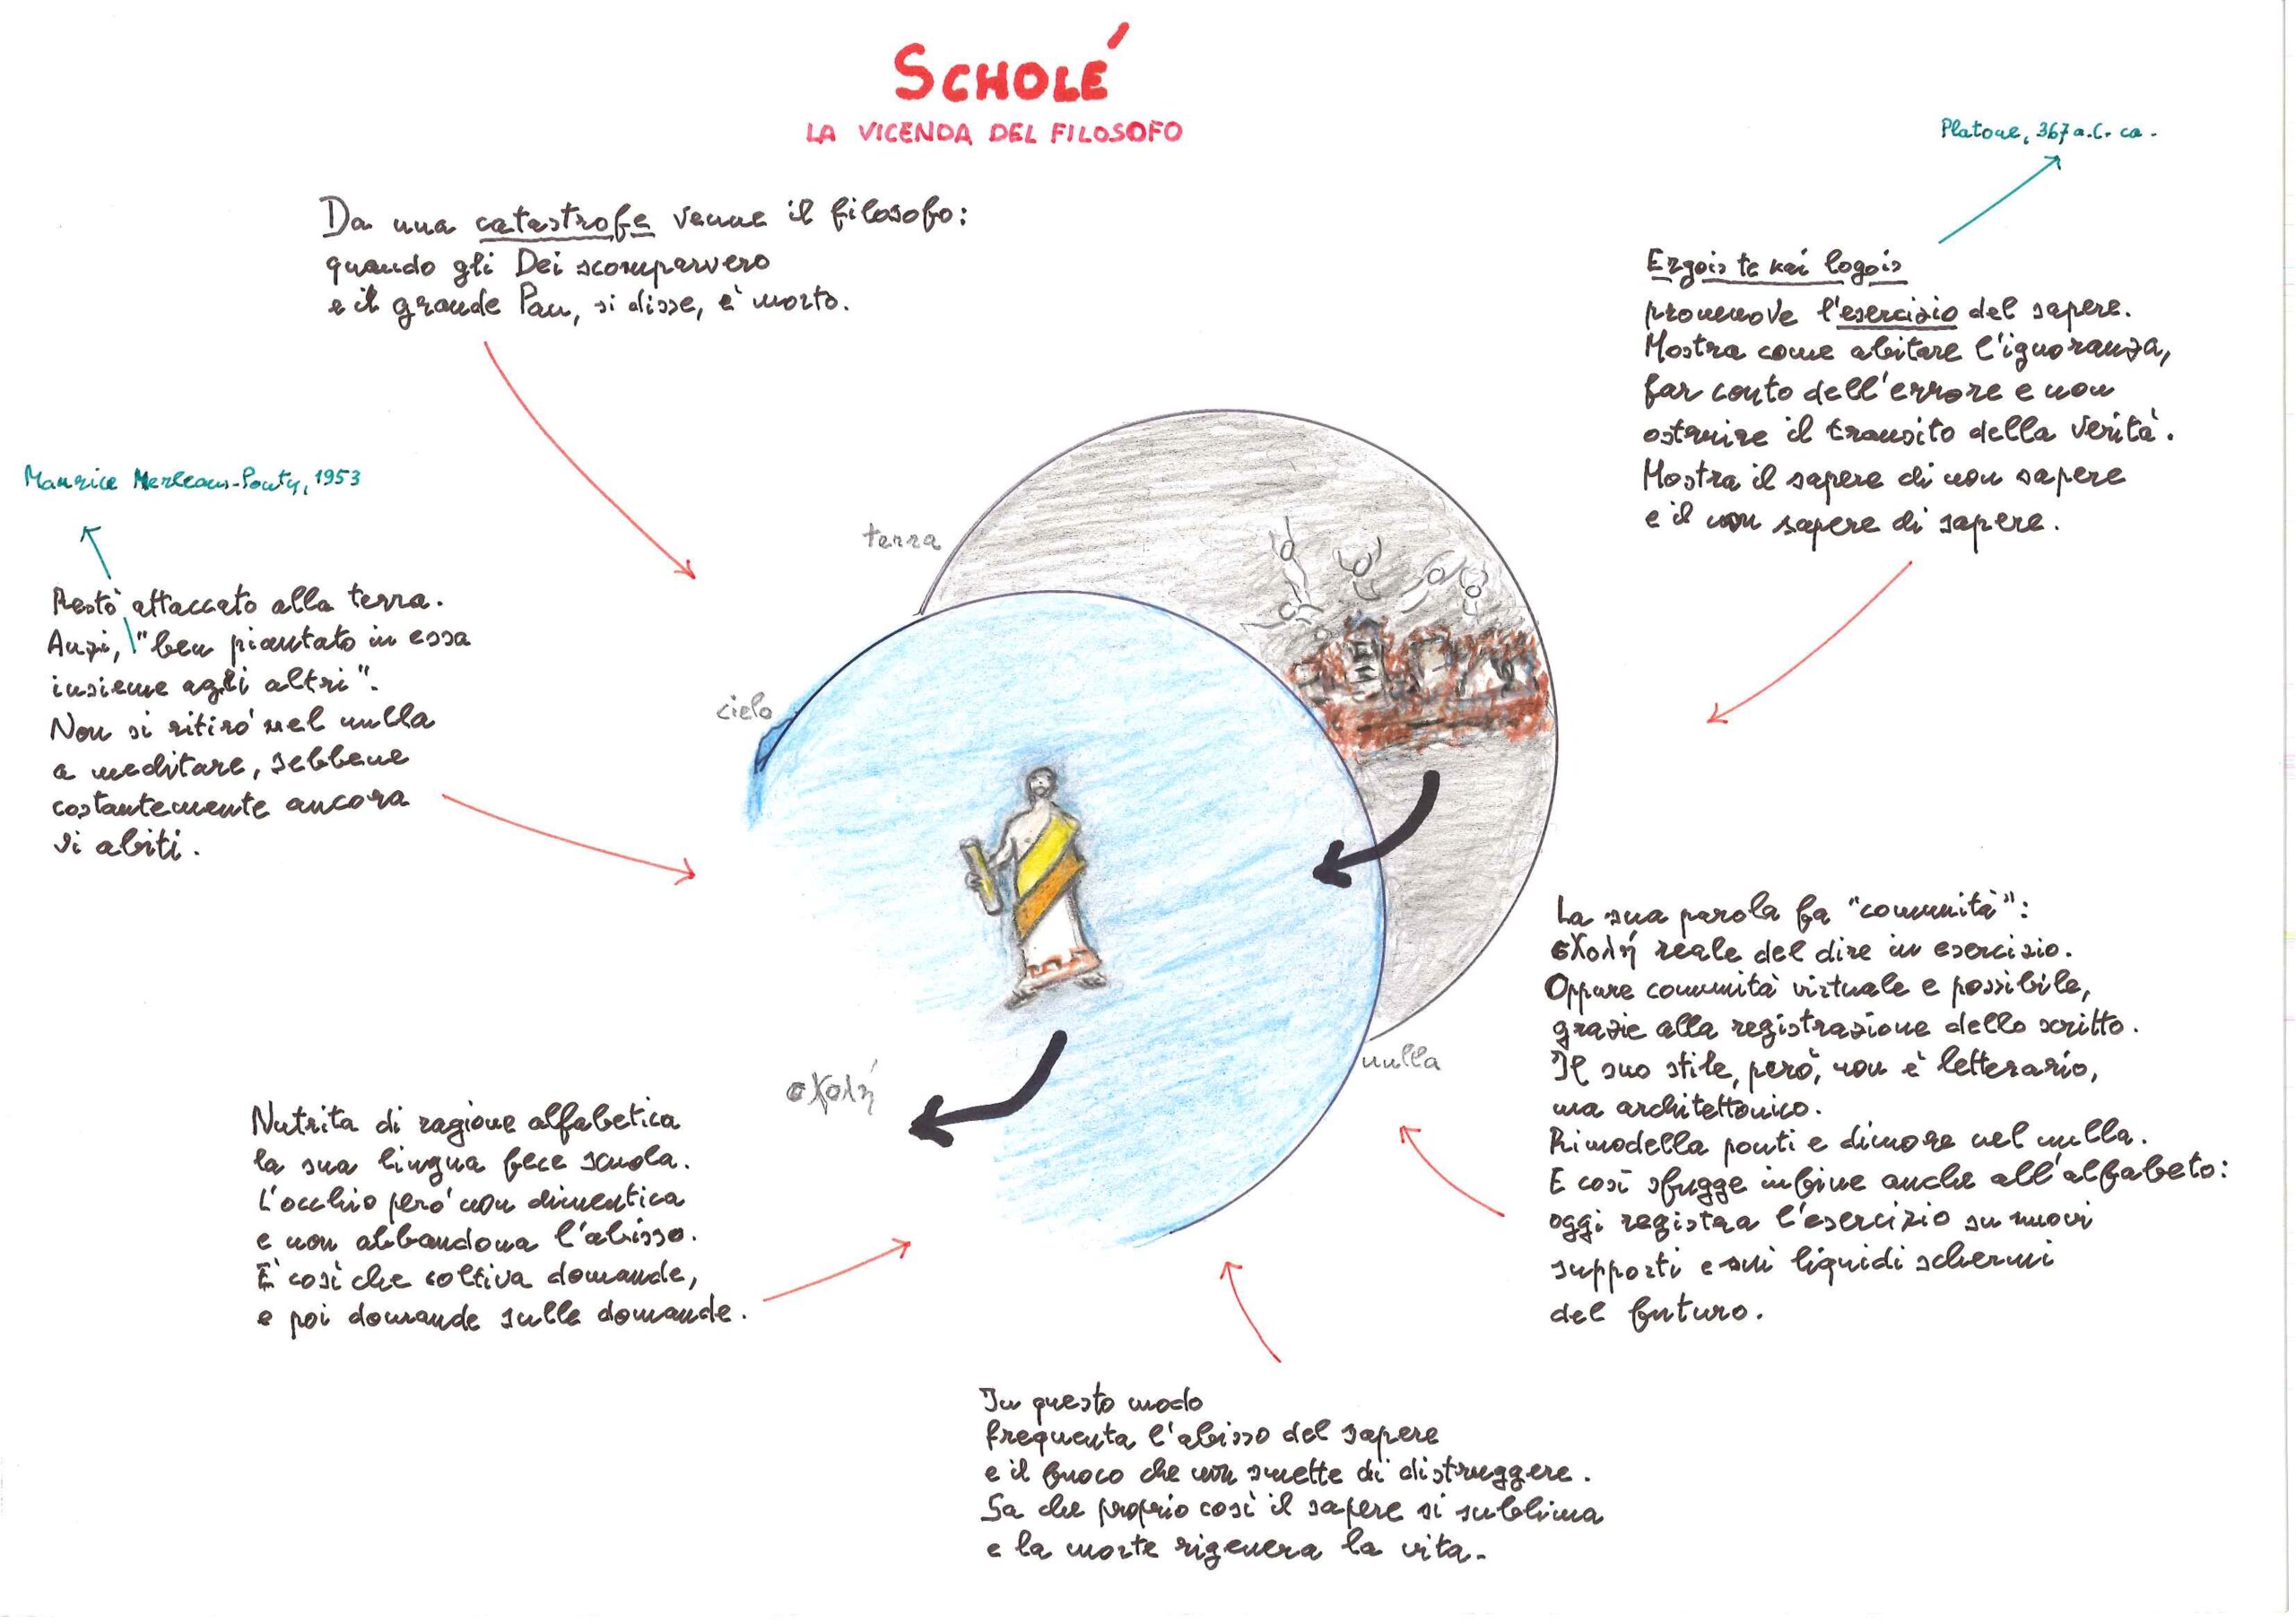 SCHOLÉ
LA VICENDA DEL FILOSOFO
Da una catastrofe venne il filosofo:
quando gli Dei scomparvero
e il grande Pan, si disse, è morto.
Maurice Merleau-Ponty, 1953
Restò attaccato alla terra.
Anzi, "ben piantato in essa
insieme agli altri".
Non si ritirò nel nulla
a meditare, sebbene
costantemente ancora
vi abiti.
Nutrita di ragione alfabetica
la sua lingua fece scuola.
L'occhio però non dimentica
e non abbandona l'abisso.
È così che coltiva domande,
e poi domande sulle domande.
terra
cielo
σχολή
nulla
Platone, 367 a.C. ca.
Ergois te kai logois
promuove l'esercizio del sapere.
Mostra come abitare l'ignoranza,
far conto dell'errore e non
ostruire il transito della verità.
Mostra il sapere di non sapere
e il non sapere di sapere.
La sua parola fa "comunità":
σχολή reale del dire in esercizio.
Oppure comunità virtuale e possibile,
grazie alla registrazione dello scritto.
Il suo stile, però, non è letterario,
ma architettonico.
Rimodella ponti e dimore nel nulla.
E così sfugge infine anche all'alfabeto:
oggi registra l'esercizio su nuovi
supporti e sui liquidi schermi
del futuro.
In questo modo
frequenta l'abisso del sapere
e il fuoco che non smette di distruggere.
Sa che proprio così il sapere si sublima
e la morte rigenera la vita.